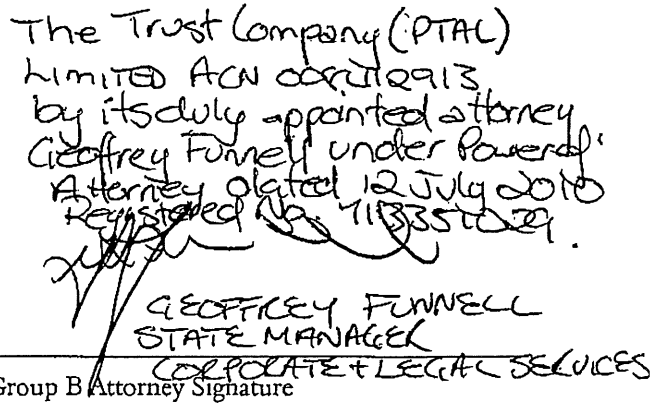 The Trust Company (PTAL)
LIMITED ACN
by its duly appointed attorney
Geoffrey Funnell under Power of
Attorney dated 12 July 2010
Registered No.
GEOFFREY FUNNELL
STATE MANAGER
CORPORATE + LEGAL SERVICES
Group B Attorney Signature